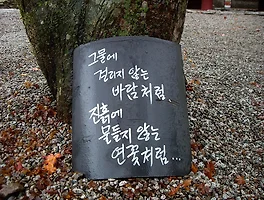 그물에
걸리지 않는
바람처럼,
진흙에
물들지 않는
연꽃처럼...